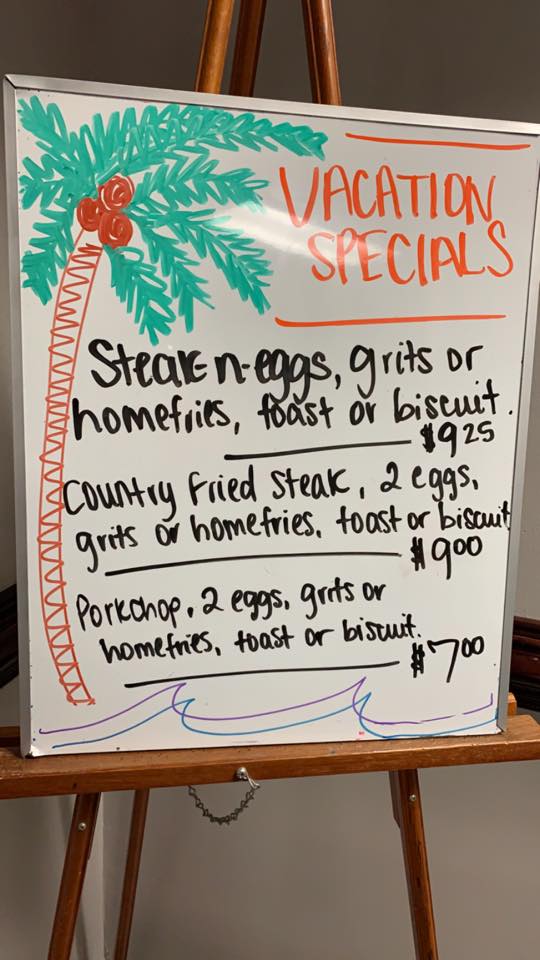 VACATION
SPECIALS
Steak-n-eggs, grits or
homefries, toast or biscuit.
$9.25
Country Fried Steak, 2 eggs,
grits or homefries, toast or biscuit
$9.00
Porkchop, 2 eggs, grits or
homefries, toast or biscuit.
$7.00